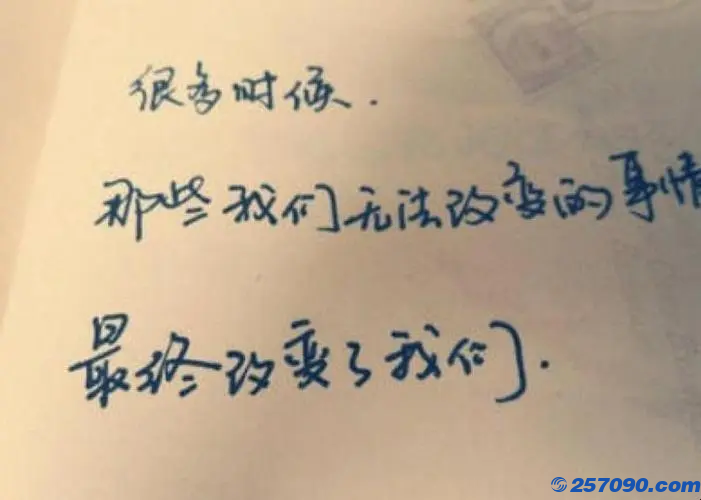 很多时候.
那些我们无法改变的事情
最终改变了我们.
257090.com